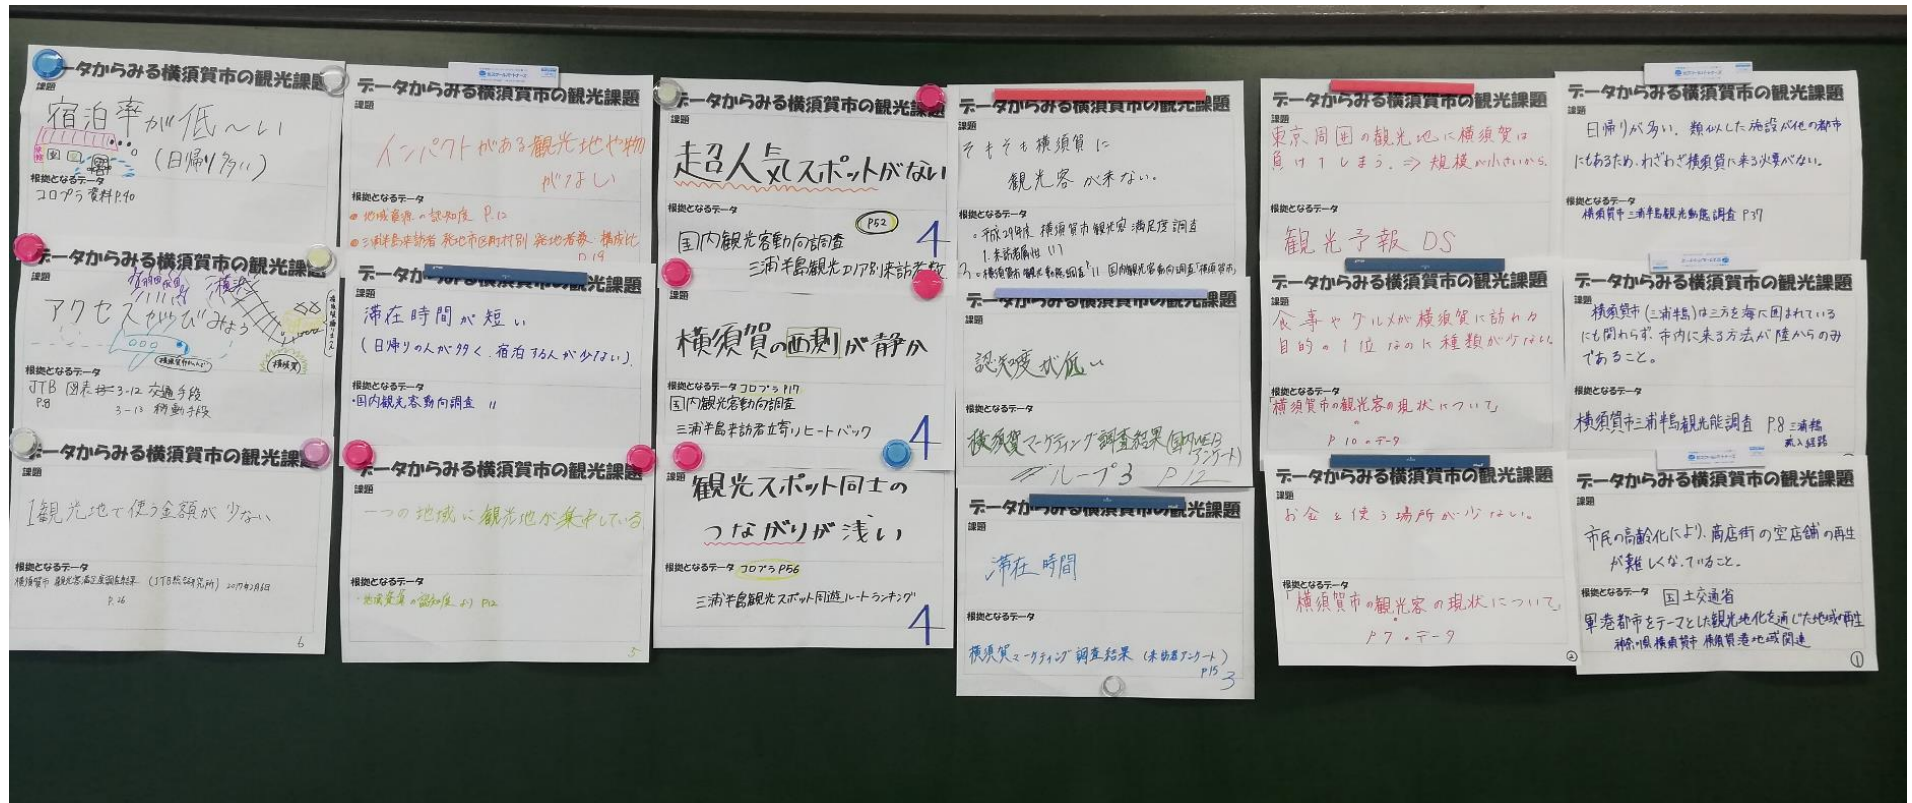 データからみる横須賀市の観光課題
課題
宿泊率が低〜い
(日帰り多い)
根拠となるデータ
コロプラ資料P.40
データからみる横須賀市の観光課題
課題
アクセスがびみょう
根拠となるデータ
JTB 図表 3-12 交通手段
P.8 3-13 移動手段
データからみる横須賀市の観光課題
課題
1観光地で使う金額が少ない
根拠となるデータ
横須賀市 観光客満足度調査結果 (JTB総合研究所) 2017年2月6日
P.26
6
データからみる横須賀市の観光課題
課題
インパクトがある観光地や物
がなし
根拠となるデータ
・地域資源の認知度 P.12
・三浦半島来訪者 発地市区町村別 発地者数 構成比
P.19
データからみる横須賀市の観光課題
課題
滞在時間が短い
(日帰りの人が多く、宿泊する人が少ない)
根拠となるデータ
・国内観光客動向調査 〃
データからみる横須賀市の観光課題
課題
一つの地域に観光地が集中している
根拠となるデータ
・地域資源の認知度より P12
5
データからみる横須賀市の観光課題
課題
超人気スポットがない
根拠となるデータ
P52
国内観光客動向調査
三浦半島観光エリア別来訪者数
4
データからみる横須賀市の観光課題
課題
横須賀の西側が静か
根拠となるデータ コロプラ P17
国内観光客動向調査
三浦半島来訪者立寄りヒートバック
4
観光スポット同士の
課題
つながりが浅い
根拠となるデータ コロプラ P56
三浦半島観光スポット周遊ルートランキング
4
データからみる横須賀市の観光課題
課題
そもそも横須賀に
観光客が来ない。
根拠となるデータ
・平成29年度 横須賀市観光客満足度調査
1.来訪者属性 (1)
3.・横須賀市観光動態調査 11 国内観光客動向調査「横須賀市」
データからみる横須賀市の観光課題
課題
認知度が低い
根拠となるデータ
横須賀マーケティング調査結果(国内WEBアンケート)
グループ3 P12
データからみる横須賀市の観光課題
課題
滞在時間
根拠となるデータ
横須賀マーケティング調査結果 (来訪者アンケート)
P15
3
データからみる横須賀市の観光課題
課題
東京周囲の観光地に横須賀は
負けてしまう。⇒規模が小さいから。
根拠となるデータ
観光予報 DS
データからみる横須賀市の観光課題
課題
食事やグルメが横須賀に訪れる
目的の1位なのに種類が少ない。
根拠となるデータ
「横須賀市の観光客の現状について」
P10のデータ
データからみる横須賀市の観光課題
課題
お金を使う場所が少ない。
根拠となるデータ
「横須賀市の観光客の現状について」
P7のデータ
②
データからみる横須賀市の観光課題
課題
日帰りが多い、類似した施設が他の都市
にもあるため、わざわざ横須賀に来る必要がない。
根拠となるデータ
横須賀市三浦半島観光動態調査 P37
データからみる横須賀市の観光課題
課題
横須賀市(三浦半島)は三方を海に囲まれている
にも関わらず、市内に来る方法が陸からのみ
であること。
根拠となるデータ
横須賀市三浦半島観光能調査 P.8 三浦半島
流入経路
データからみる横須賀市の観光課題
課題
市民の高齢化により、商店街の空店舗の再生
が難しくなっていること。
根拠となるデータ 国土交通省
軍港都市をテーマとした観光地化を通じた地域の再生
神奈川県横須賀市 横須賀港地域関連
①